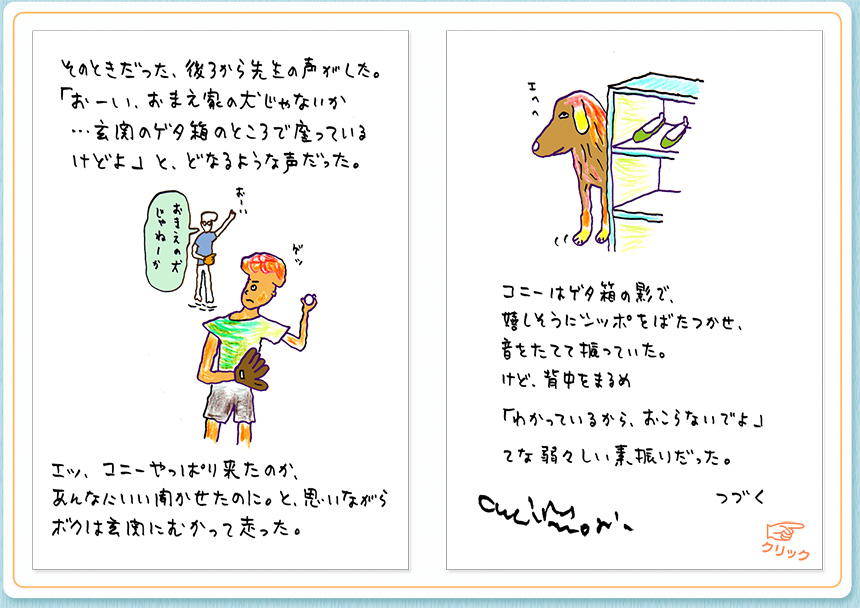 そのときだった、後ろから先生の声がした。
「おーい、おまえ家の犬じゃないか
…玄関のゲタ箱のところで座っている
けどよ」と、どなるような声だった。
おーい
おまえの犬
じゃねーか
ゲッ
エッ、コニーやっぱり来たのか、
あんなにいい聞かせたのに。と、思いながら
ボクは玄関にむかって走った。
エヘヘ
コニーはゲタ箱の影で、
嬉しそうにシッポをばたつかせ、
音をたてて振っていた。
けど、背中をまるめ
「わかっているから、おこらないでよ」
てな弱々しい素振りだった。
つづく
クリック